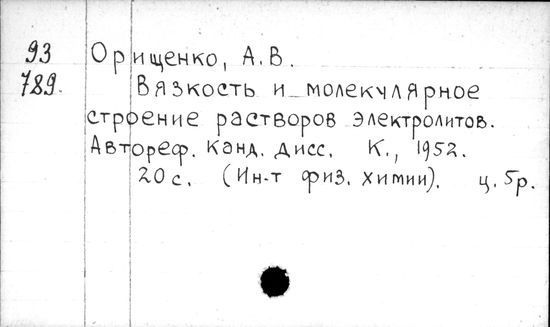 93 Орищенко, А.В.
789. Вязкость и молекулярное
строение растворов электролитов.
Автореф. канд. дисс. К., 1952.
20 с. (Ин-т физ. химии). ц. 5р.